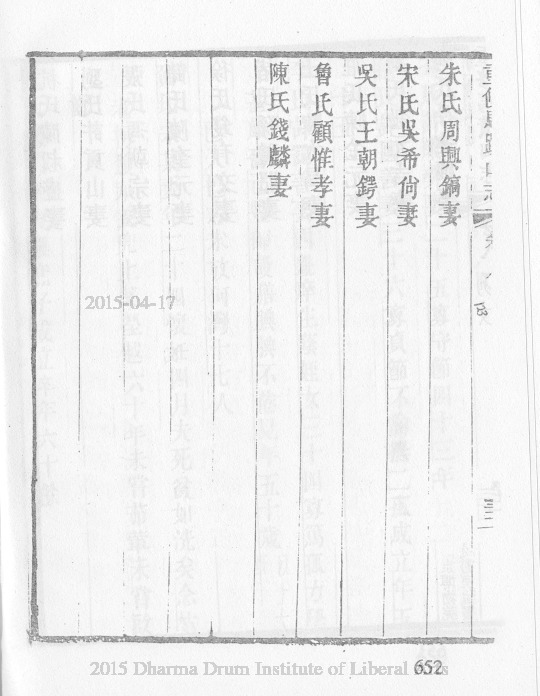 朱氏周興鎬妻
宋氏吳希尙妻
吳氏王朝鍔妻
魯氏顧惟孝妻
陳氏錢麟妻
2015-04-17
652
2015 Dharma Drum Institute of Liberal Arts